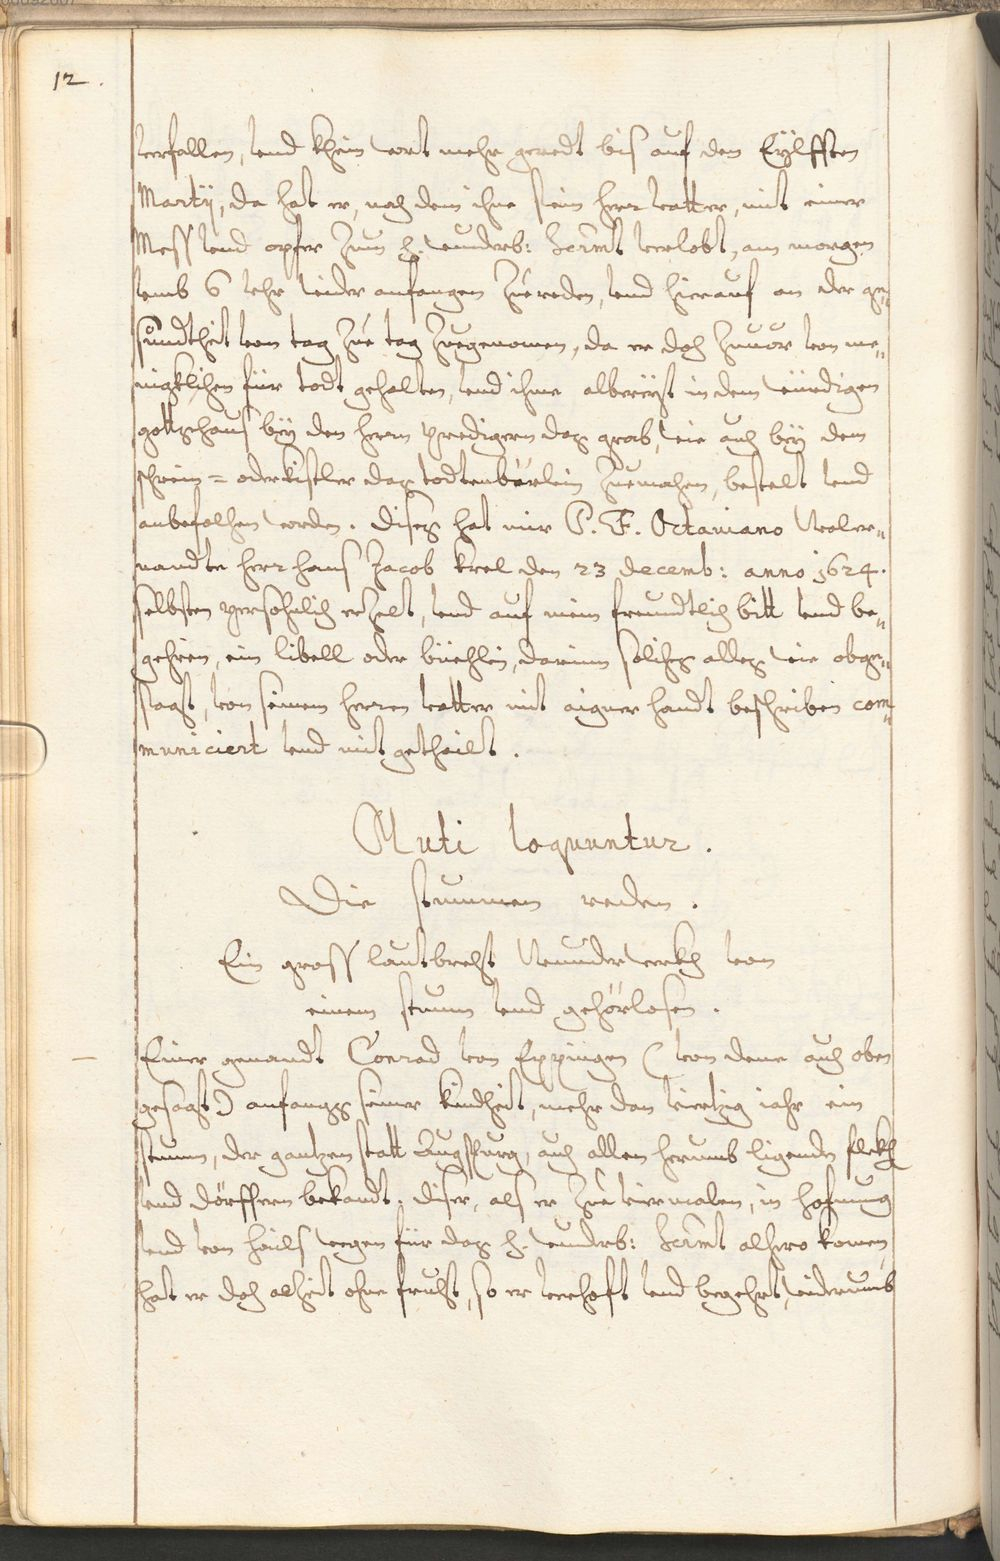 12.
verfallen, vnd khein wort mehr geredt bis auf den Eÿlfften
Martÿ, da hat er, nach dem ihne sein herr vatter, mit einer
Mess vnd opfer zum h. wunderb: Sacrmt verlobt, am morgen
vmb 6 vhr wider anfangen zue reden, vnd hierauf an der ge„
sundtheit von tag zue tag zuegenomen, da er doch zuuor von me„
nigklichen für todt gehalten, vnd ihme albereyt in dem würdigen
gottshaus bÿ den herrn predigern das grab, wie auch bÿ dem
schrein= oder kistler das todtenbärlein zuemachen, bestelt vnd
anbefolhen worden. dises hat mir P. F. Octauiano Woler„
nandte herr hans Jacob Krel den 23 decemb: anno 1624.
selbsten persohnlich erzelt, vnd auf mein freundtlich bitt vnd be„
gehren, ein libell oder büechlin, darinn soliches alles wie obge„
sagt, von seinem herren vatter mit aigner handt beschriben com„
municiert vnd mitgetheilt.
Muti loquuntur.
Die stummen reden.
Ein gross lautbrecht Wunderwerkh von
einem stumm vnd gehörlosen.
Einer genandt Conrad von Eppingen (von deme auch oben
gesagt) anfangs seiner kindheit, mehr dan viertzig iahr ein
stumm, der gantzen statt Augspurg, auch allen herumb ligenden flekh
vnd dörffern bekandt. diser, als er zue viermalen, in hofnung
vnd von heils wegen für das h. wundrb: Sacrmt alhero komen,
hat er doch alzeit ohne frucht, so er verhoft vnd begehrt, widerumb